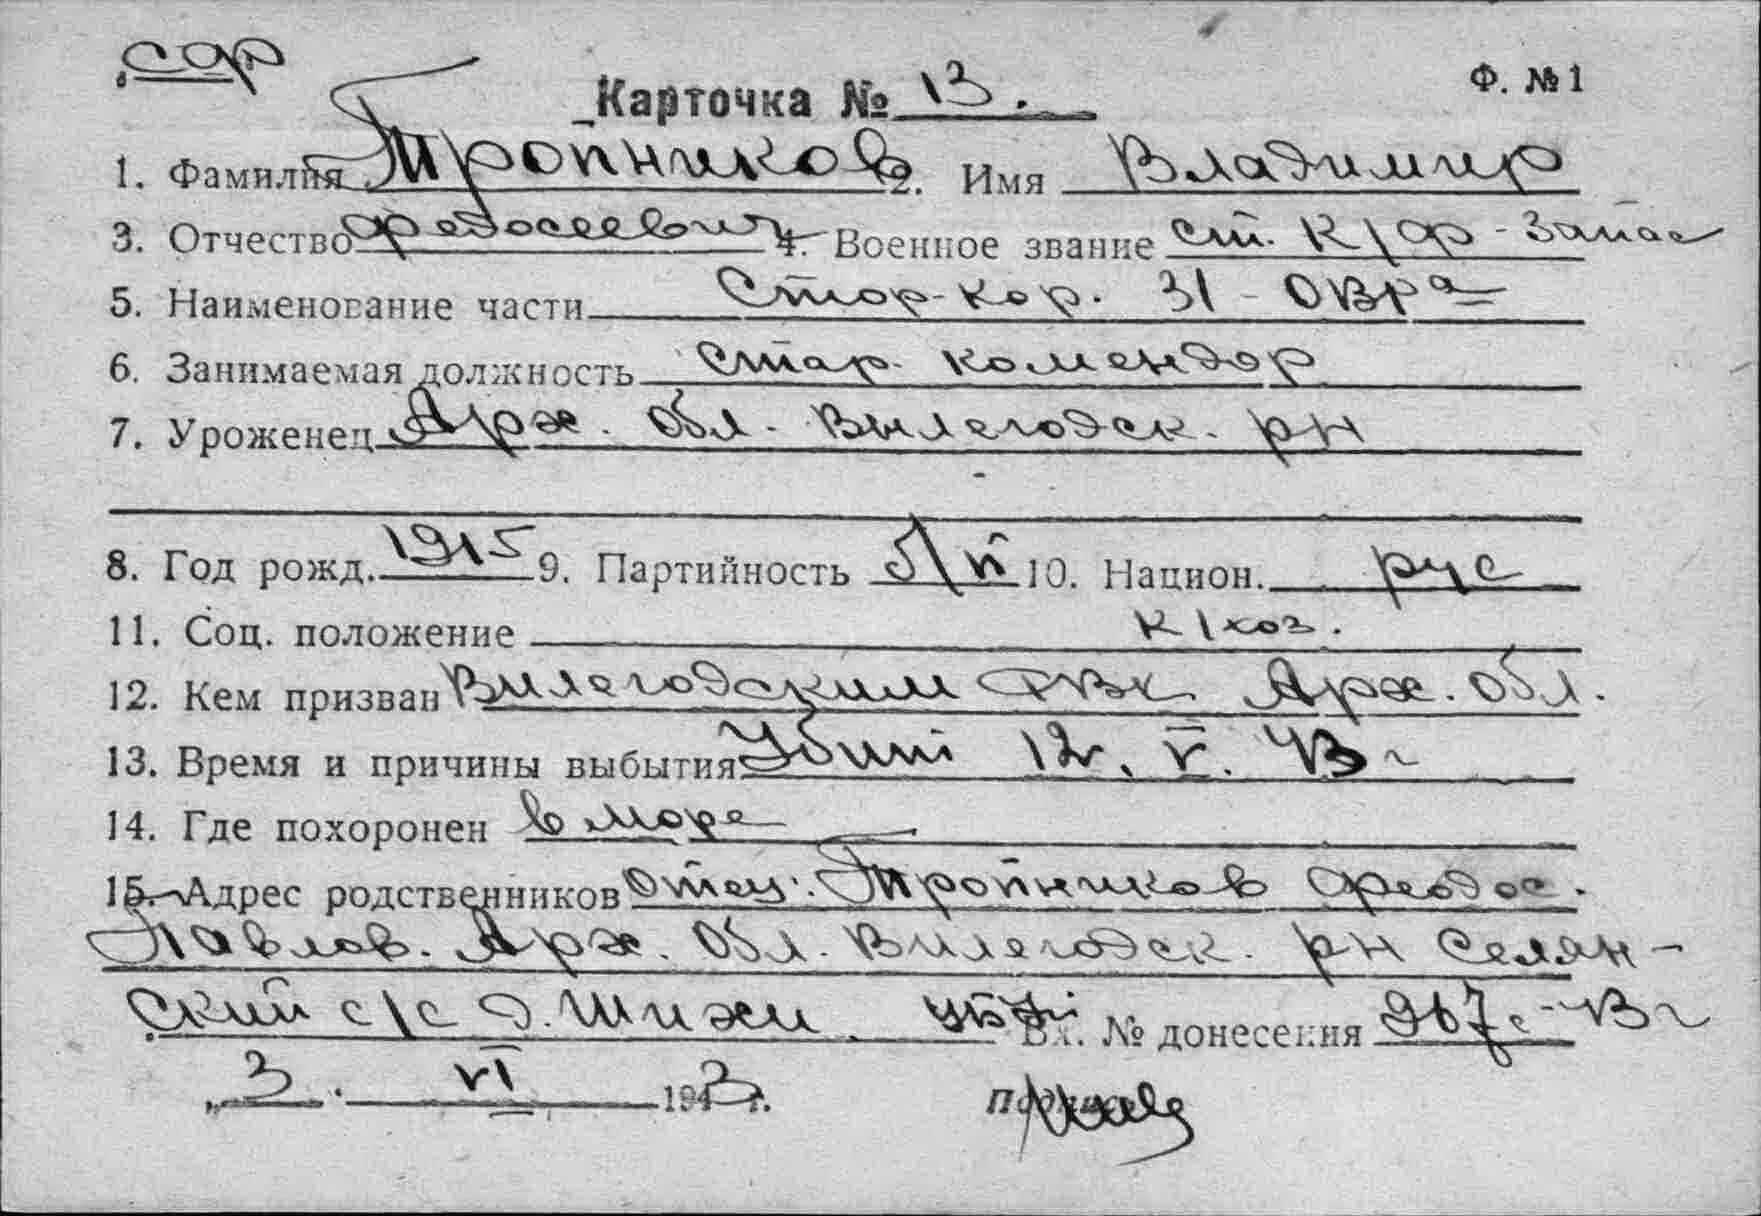 сф
Карточка № 13.
Ф. № 1
1. Фамилия Тропников 2. Имя Владимир
3. Отчество Федосеевич 4. Военное звание ст. к/ф - запас
5. Наименование части Стор-кор. 31 - ОВРа
6. Занимаемая должность стар. комендор
7. Уроженец Арх. обл. Вилегодск. рн
8. Год рожд. 1915 9. Партийность б/п 10. Национ. рус
11. Соц. положение к/хоз.
12. Кем призван Вилегодским РВК Арх. обл.
13. Время и причины выбытия Убит 12. V. 43 г
14. Где похоронен в море
15. Адрес родственников отец: Тропников Федос.
Павлов. Арх. обл. Вилегодск. рн Селян-
ский с/с д. Шихи Вх. № донесения 967с - 43 г
„3. VI 1943 г.